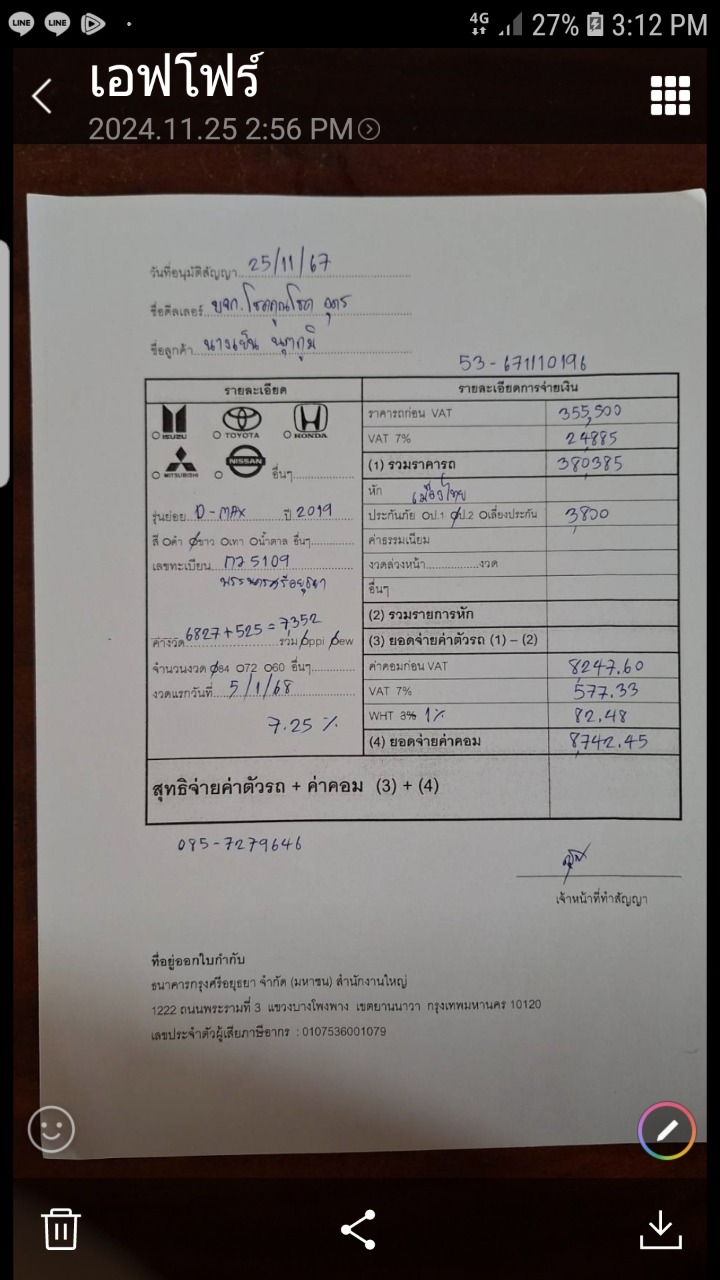 LINE LINE 4G 27% 3:12 PM
เอฟโฟร์
2024.11.25 2:56 PM
วันที่อนุมัติสัญญา 25/11/67
ชื่อดีลเลอร์ บจก. โชคคูณโชค อุดร
ชื่อลูกค้า นางเย็น
53-671110196
รายละเอียด
รายละเอียดการจ่ายเงิน
ISUZU TOYOTA HONDA
MITSUBISHI NISSAN อื่นๆ
รุ่นย่อย D-MAX ปี 2019
สี ดำ ขาว เทา น้ำตาล อื่นๆ
เลขทะเบียน กว 5109
พระนครศรีอยุธยา
6827+525=7352
ค่างวด รวม ppi ew
จำนวนงวด 84 72 60 อื่นๆ
งวดแรกวันที่ 5/1/68
7.25 %
ราคารถก่อน VAT 355,500
VAT 7% 24,885
(1) รวมราคารถ 380,385
หัก เมืองไทย
ประกันภัย ป.1 ป.2 เลี่ยงประกัน 3,800
ค่าธรรมเนียม
งวดล่วงหน้า.................งวด
อื่นๆ
(2) รวมรายการหัก
(3) ยอดจ่ายค่าตัวรถ (1) – (2)
ค่าคอมก่อน VAT 8,247.60
VAT 7% 577.33
WHT 3% 1% 82.48
(4) ยอดจ่ายค่าคอม 8,742.45
สุทธิจ่ายค่าตัวรถ + ค่าคอม (3) + (4)
095-7279646
เจ้าหน้าที่ทำสัญญา
ที่อยู่ออกใบกำกับ
ธนาคารกรุงศรีอยุธยา จำกัด (มหาชน) สำนักงานใหญ่
1222 ถนนพระรามที่ 3 แขวงบางโพงพาง เขตยานนาวา กรุงเทพมหานคร 10120
เลขประจำตัวผู้เสียภาษีอากร : 0107536001079